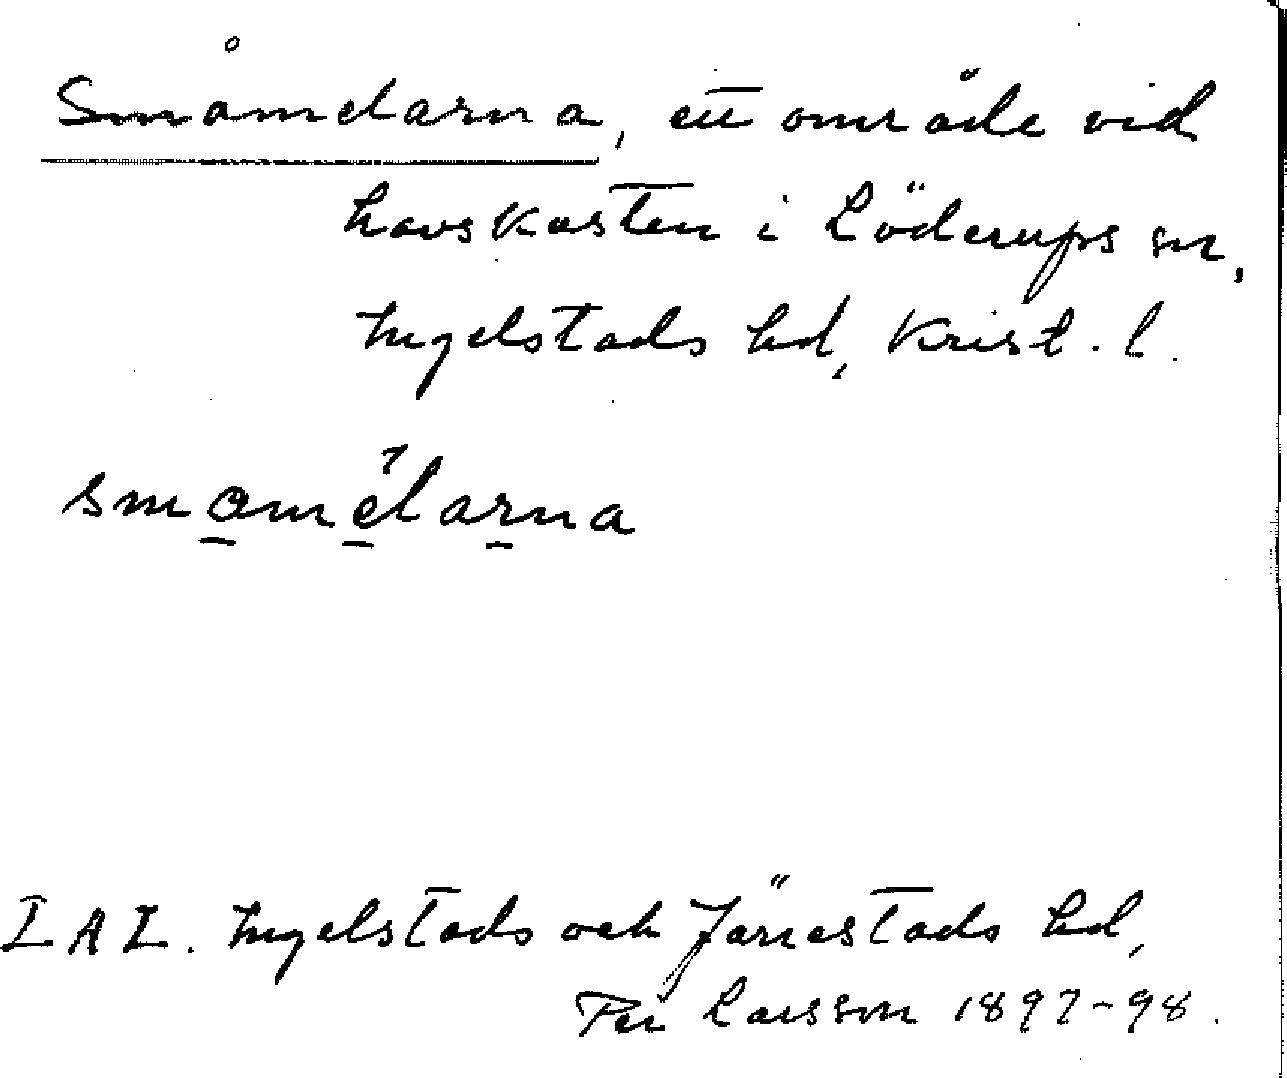 Småmelarna, ett område vid
havskusten i Löderups sn,
Ingelstads hd, Krist. l.
smamelarna
LAL. Ingelstads och Järrestads hd,
Per Larsson 1897-98.